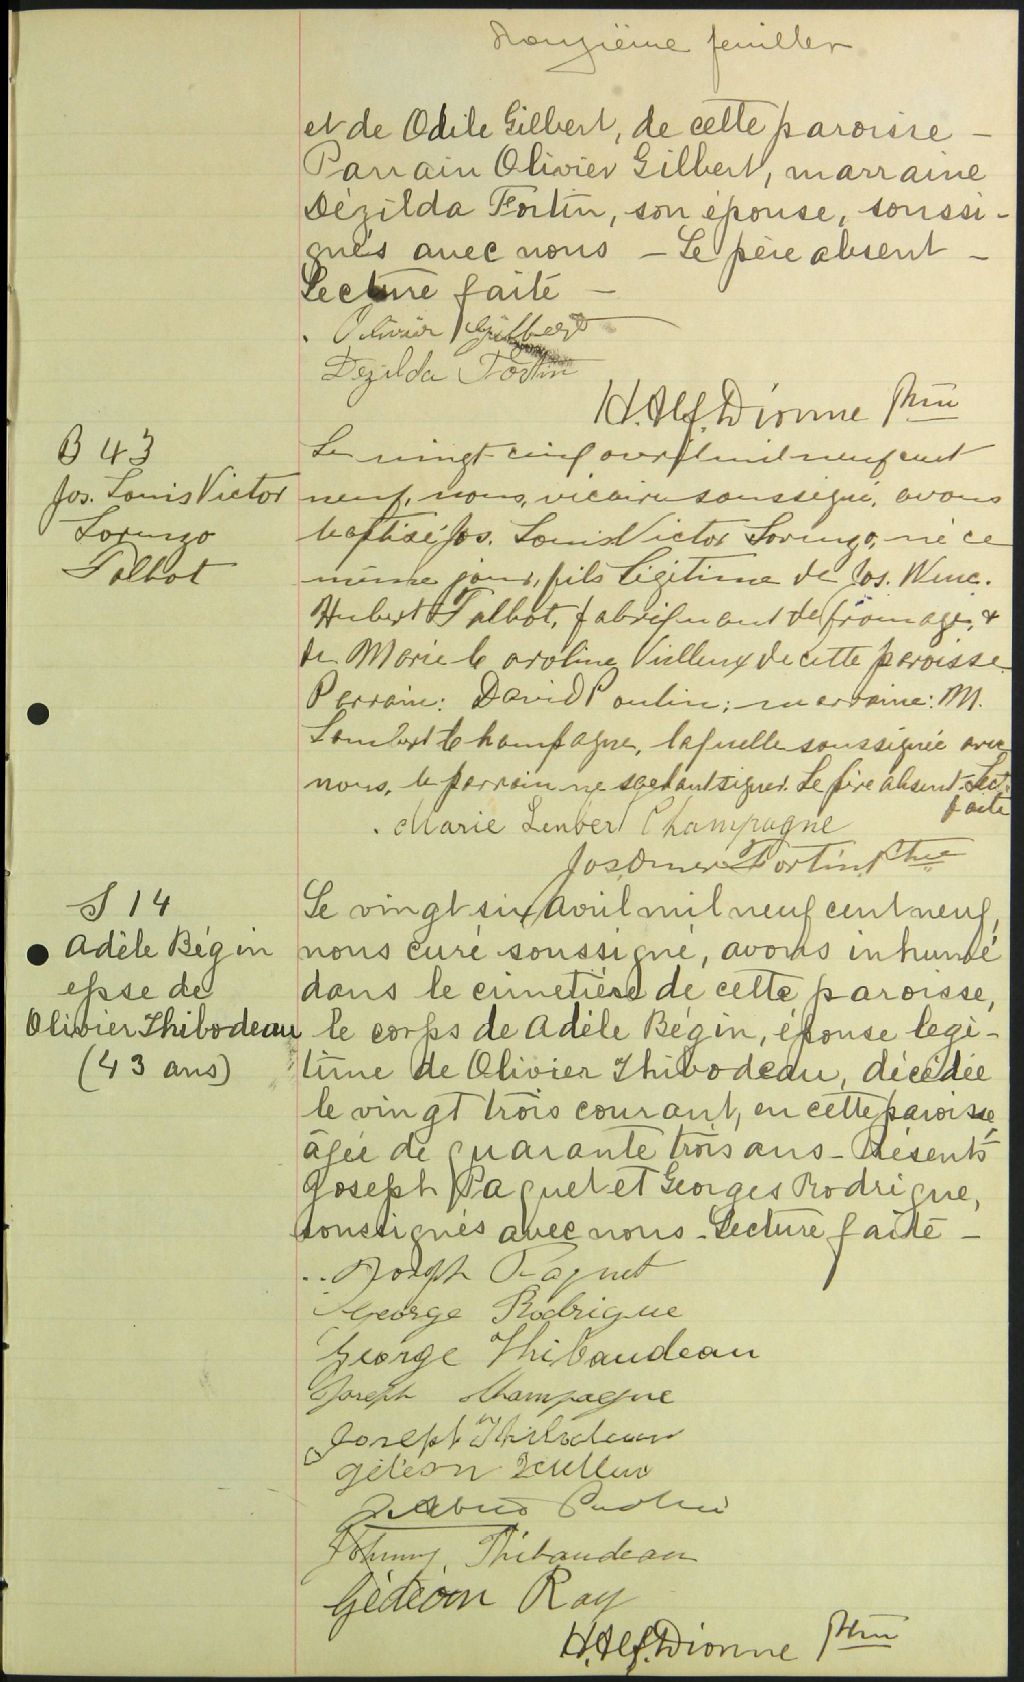 Douzième feuillet
et de Odile Gilbert, de cette paroisse –
Parrain Olivier Gilbert, marraine
Dézilda Fortin, son épouse, soussi-
gnés avec nous – Le père absent –
Lecture faite –
Olivier Gilbert
Dezilda Fortin
H. Alf. Dionne Ptre
B 43
Jos. Louis Victor
Lorenzo
Talbot
Le vingt cinq avril mil neuf cent
neuf, nous, vicaire soussigné, avons
baptisé Jos. Louis Victor Lorenzo, né ce
même jour, fils légitime de Jos. Wenc.
Hubert Talbot, fabriquant de fromage, &
de Marie Caroline Veilleux de cette paroisse.
Parrain: David Poulin; marraine: M.
Lambert Champagne, laquelle soussignée avec
nous, le parrain ne sachant signer. Le père absent. Lect.
faite
Marie Lenbert Champagne
Jos Omer Fortin Ptre
S 14
Adèle Bégin
epse de
Olivier Thibodeau
(43 ans)
Le vingt six avril mil neuf cent neuf,
nous curé soussigné, avons inhumé
dans le cimetière de cette paroisse,
le corps de Adèle Bégin, épouse legi-
time de Olivier Thibodeau, décédée
le vingt trois courant, en cette paroisse,
âgée de quarante trois ans – Présents
Joseph Paquet et Georges Rodrigue,
soussignés avec nous – Lecture faite –
Joseph Paquet
George Rodrigue
George Thibaudeau
Joseph Champagne
Joseph Thibodeau
Poulin
Johnny Thibaudeau
Gédéon Roy
H. Alf. Dionne Ptre